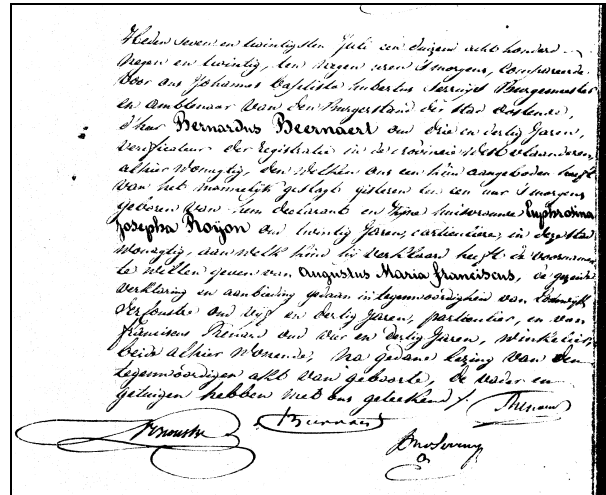 Heden seven en twintigsten July een duizend acht honderd
negen en twintig, ten negen uren 's morgens, compareerde
voor ons Johannes Baptista Hubertus Serruys Burgemeester
en ambtenaar van den Burgerstand der stad Oostende,
d'heer Bernardus Beernaert oud drie en dertig Jaren,
verificateur der registratie in de Provincie West vlaanderen,
alhier woonagtig, den welken ons een kind aangeboden heeft
van het mannelijk geslagt gisteren ten een uur 's morgens
geboren van hem declarant en zijne huisvrouwe Euphrosina
Josepha Royon oud twintig Jaren, in deze stad
woonagtig, aan welk kind hij verklaard heeft de voornamen
te willen geven van Augustus Maria Franciscus, de gezeide
verklaring en aanbieding gedaan in tegenwoordigheid van Lodewijk
oud vijf en dertig Jaren, particulier, en van
Franciscus Thénard oud vier en dertig Jaren, winkelier
beide alhier wonende, na gedane lezing van den
tegenwoordigen akt van geboorte, de vader en
getuigen hebben met ons geteekend /.
Beernaert